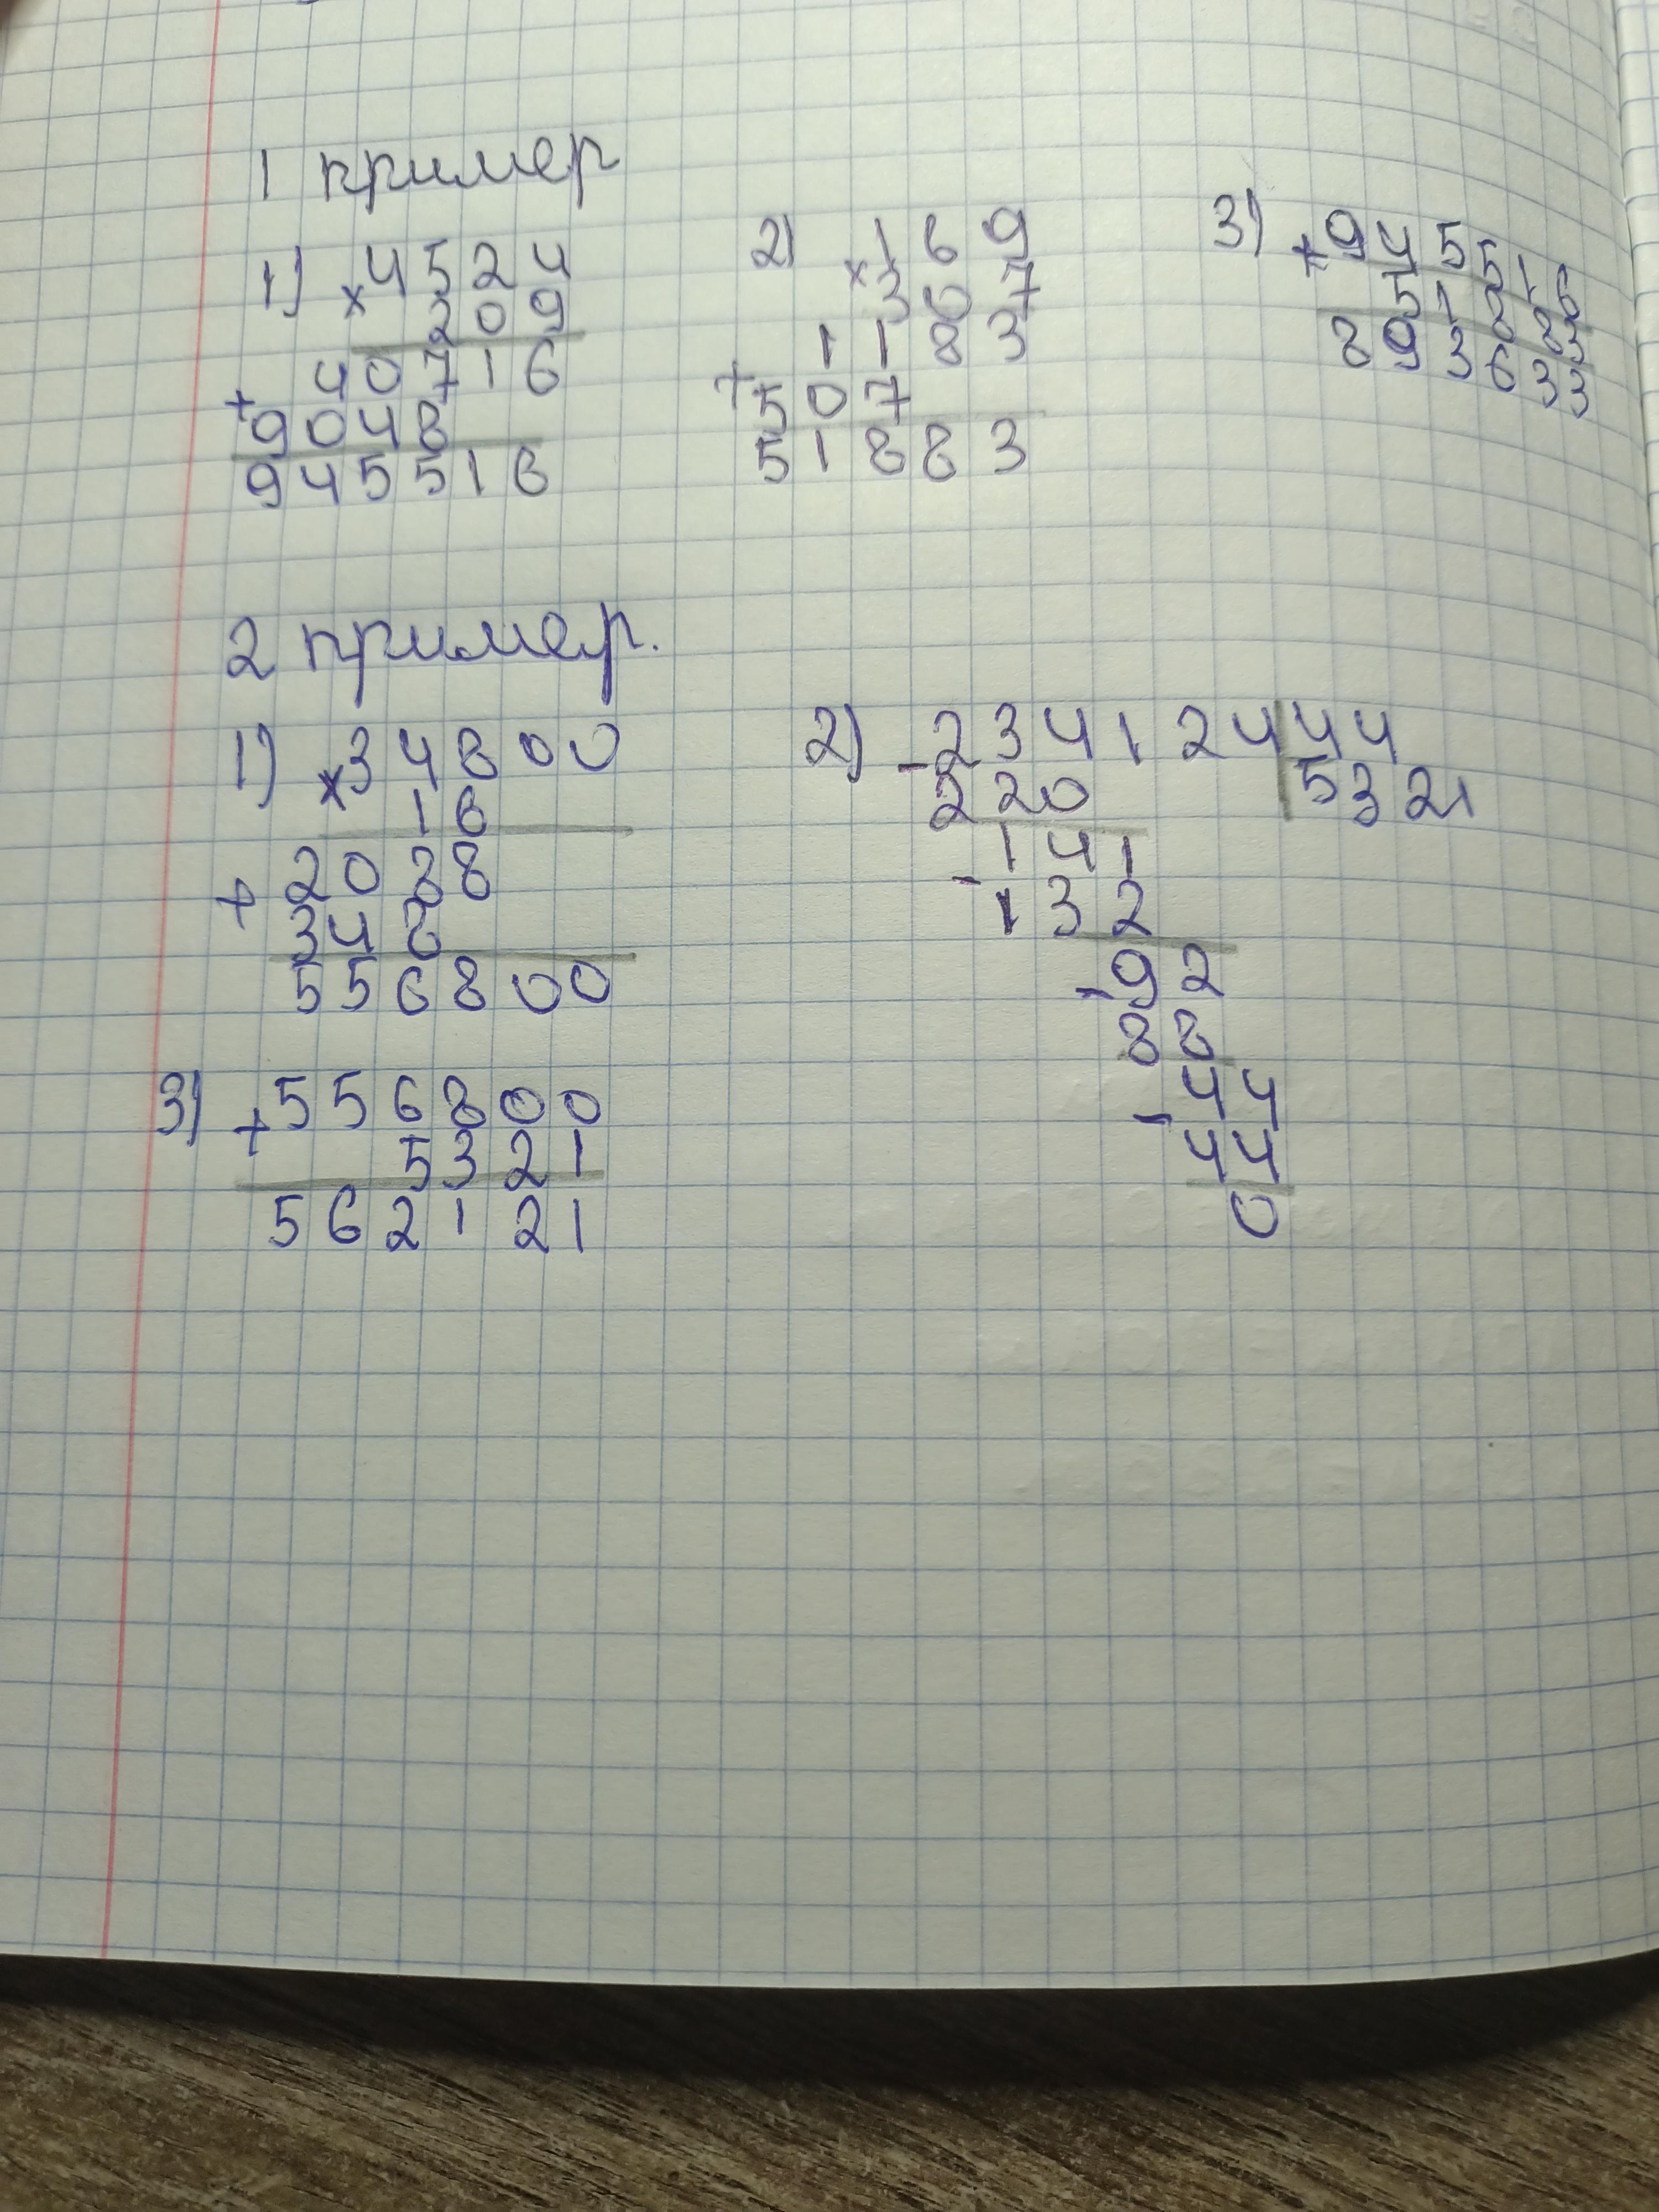 1 пример
1) × 4524
209
+ 40716
9048
945516
2) × 169
307
1183
+ 507
51883
3) + 945516
51883
893633
2 пример.
1) × 34800
16
+ 2088
348
556800
2) - 234124 44
220 5321
- 141
132
- 92
88
- 44
44
0
3) + 556800
5321
562121